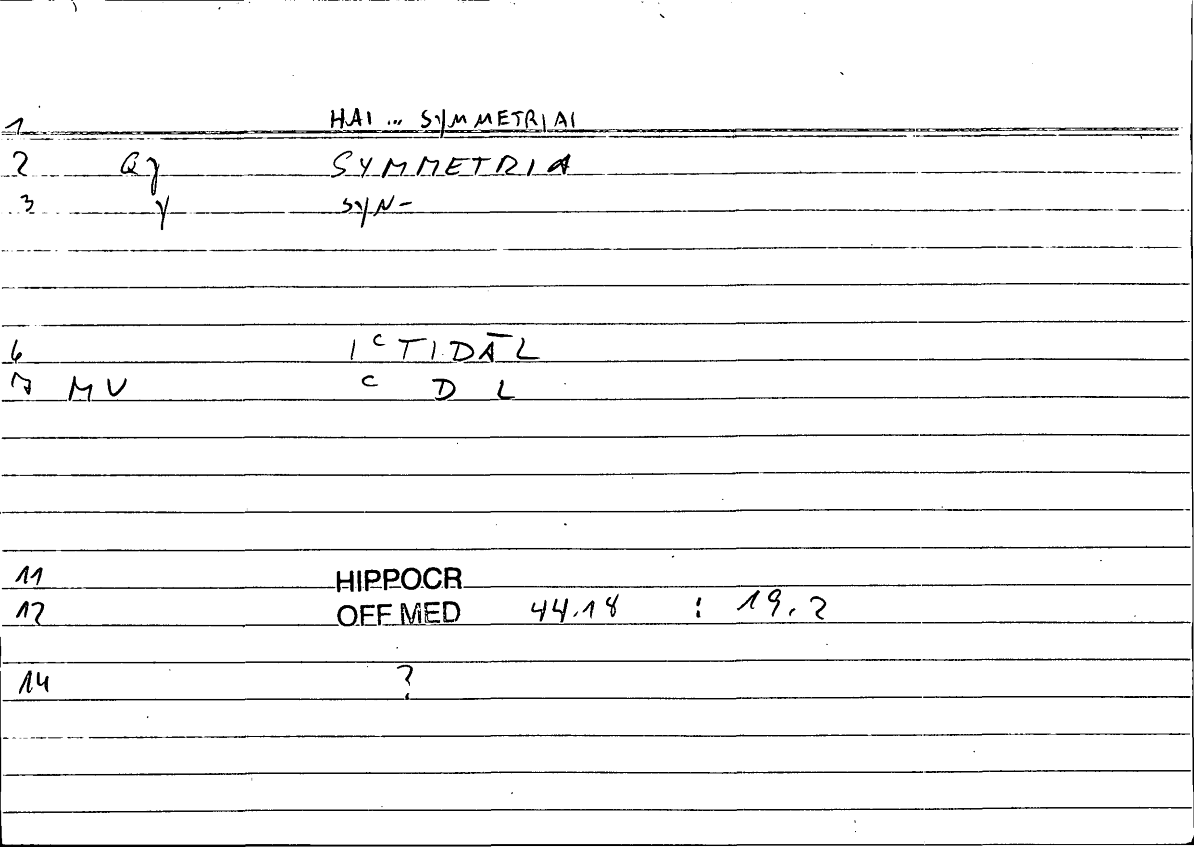 1 HAI ... SYMMETRIAI
2 Qγ SYMMETRIA
3 γ SYN-
6 IᶜTIDĀL
7 MV ᶜ D L
11 HIPPOCR
12 OFF MED 44.18 : 19.2
14 ?